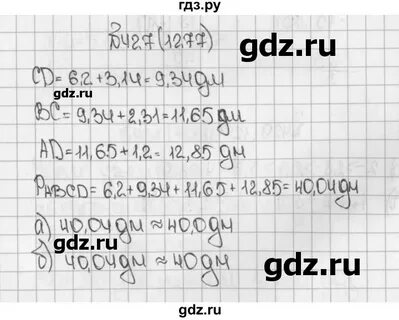 гдз.ру
В427(1277)
gdz.ru
CD = 6,2 + 3,14 = 9,34 дм
BC = 9,34 + 2,31 = 11,65 дм
AD = 11,65 + 1,2 = 12,85 дм
PABCD = 6,2 + 9,34 + 11,65 + 12,85 = 40,04 дм
а) 40,04 дм ≈ 40,0 дм
gdz.ru
б) 40,04 дм ≈ 40 дм
gdz.ru
gdz.ru